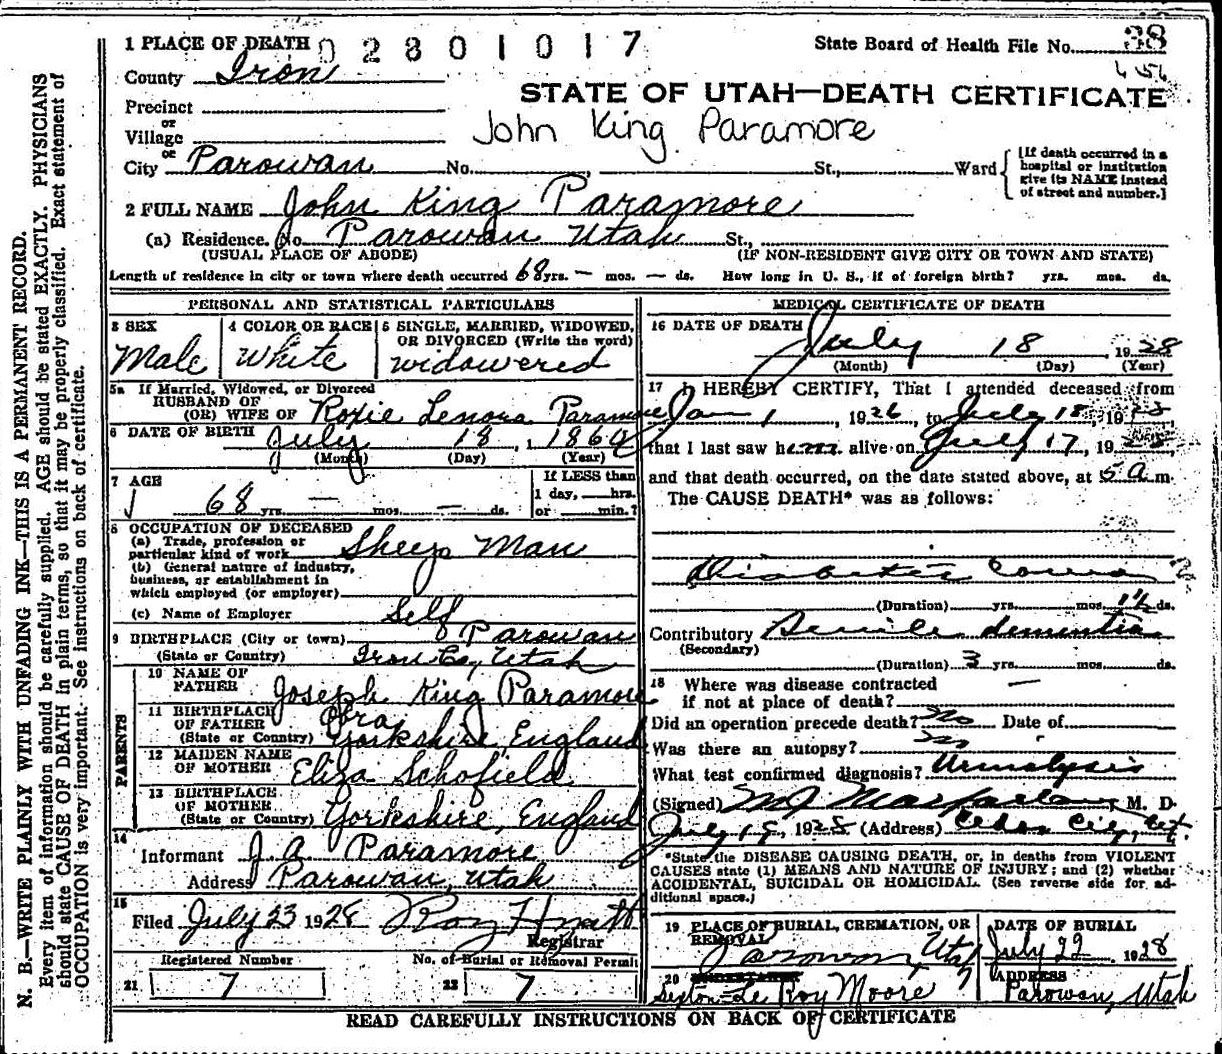 1 PLACE OF DEATH 02801017
State Board of Health File No. 38
County Iron
STATE OF UTAH—DEATH CERTIFICATE
Precinct
or
Village
John King Paramore
or
City Parowan No. , St., Ward
[If death occurred in a hospital or institution give its NAME instead of street and number.]
2 FULL NAME John King Paramore
(a) Residence. No. Parowan Utah St.,
(USUAL PLACE OF ABODE) (IF NON-RESIDENT GIVE CITY OR TOWN AND STATE)
Length of residence in city or town where death occurred 68 yrs. — mos. — ds. How long in U. S., if of foreign birth? yrs. mos. ds.
PERSONAL AND STATISTICAL PARTICULARS
3 SEX
Male
4 COLOR OR RACE
White
5 SINGLE, MARRIED, WIDOWED, OR DIVORCED (Write the word)
widowered
5a If Married, Widowed, or Divorced
HUSBAND OF
(OR) WIFE OF Roxie Lenora Paramore
6 DATE OF BIRTH July 18, 1860
(Month) (Day) (Year)
7 AGE
68 yrs. — mos. — ds.
If LESS than
1 day, hrs.
or min.?
8 OCCUPATION OF DECEASED
(a) Trade, profession or
particular kind of work Sheep Man
(b) General nature of industry,
business, or establishment in
which employed (or employer)
(c) Name of Employer Self
9 BIRTHPLACE (City or town) Parowan
(State or Country) Iron Co, Utah
PARENTS
10 NAME OF
FATHER Joseph King Paramore
11 BIRTHPLACE
OF FATHER
(State or Country) Yorkshire, England
12 MAIDEN NAME
OF MOTHER Eliza Schofield
13 BIRTHPLACE
OF MOTHER
(State or Country) Yorkshire, England
14
Informant J. A. Paramore
Address Parowan, Utah
15
Filed July 23 1928
Registrar
Registered Number No. of Burial or Removal Permit
21 7 22 7
MEDICAL CERTIFICATE OF DEATH
16 DATE OF DEATH July 18, 1928
(Month) (Day) (Year)
17 I HEREBY CERTIFY, That I attended deceased from
Jan 1, 1926, to July 18, 1928
that I last saw him alive on July 17, 1928,
and that death occurred, on the date stated above, at 5 a m.
The CAUSE DEATH* was as follows:
Diabetic Coma
(Duration) yrs. mos. 1½ ds.
Contributory Senile dementia
(Secondary)
(Duration) 3 yrs. mos. ds.
18 Where was disease contracted —
if not at place of death?
Did an operation precede death? no Date of
Was there an autopsy? no
What test confirmed diagnosis? Urinalysis
(Signed) M J Macfarlane, M. D.
July 19, 1928 (Address) Cedar City, Ut.
*State the DISEASE CAUSING DEATH, or, in deaths from VIOLENT
CAUSES state (1) MEANS AND NATURE OF INJURY; and (2) whether
ACCIDENTAL, SUICIDAL OR HOMICIDAL. (See reverse side for ad-
ditional space.)
19 PLACE OF BURIAL, CREMATION, OR
REMOVAL
Parowan, Utah
DATE OF BURIAL
July 22 1928
20
Sexton Le Roy Moore
ADDRESS
Parowan, Utah
READ CAREFULLY INSTRUCTIONS ON BACK OF CERTIFICATE
N. B.—WRITE PLAINLY WITH UNFADING INK—THIS IS A PERMANENT RECORD.
Every item of information should be carefully supplied. AGE should be stated EXACTLY. PHYSICIANS
should state CAUSE OF DEATH in plain terms, so that it may be properly classified. Exact statement of
OCCUPATION is very important. See instructions on back of certificate.